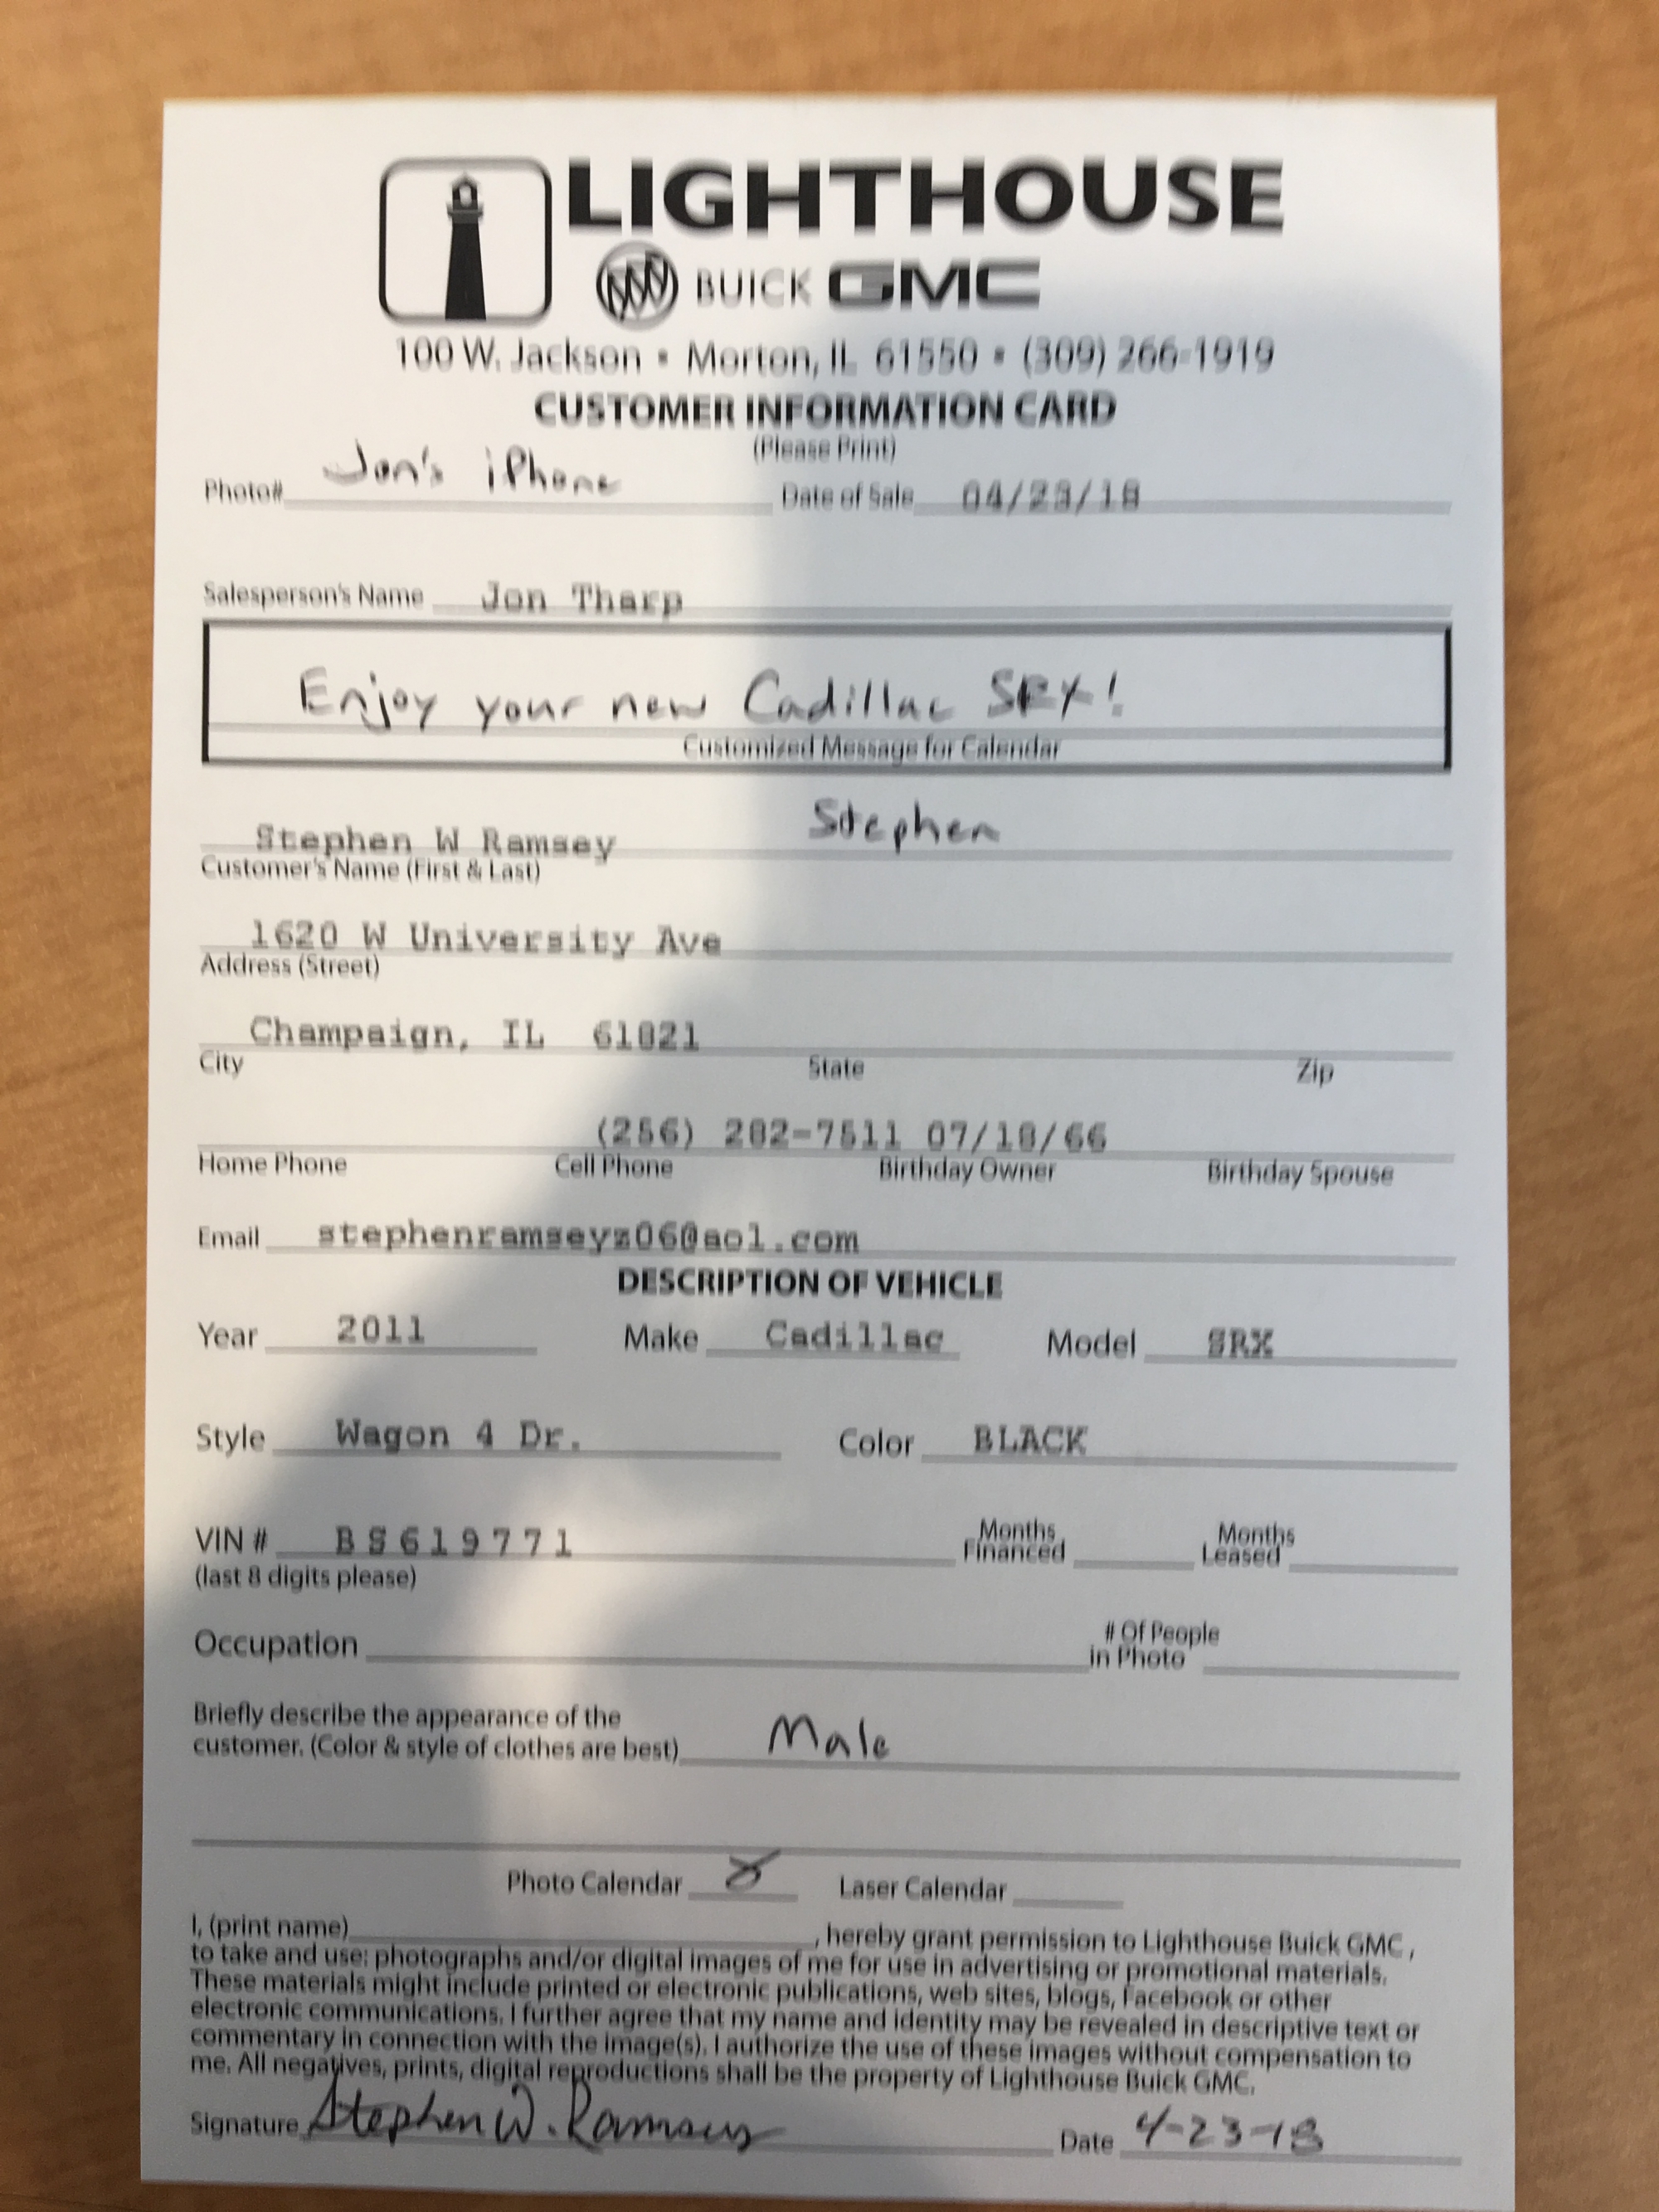 LIGHTHOUSE
BUICK GMC
100 W. Jackson • Morton, IL 61550 • (309) 266-1919
CUSTOMER INFORMATION CARD
(Please Print)
Photo# Jon's iPhone Date of Sale 04/23/18
Salesperson's Name Jon Tharp
Enjoy your new Cadillac SRX!
Customized Message for Calendar
Stephen W Ramsey Stephen
Customer's Name (First & Last)
1620 W University Ave
Address (Street)
Champaign, IL 61821
City State Zip
(256) 282-7511 07/18/66
Home Phone Cell Phone Birthday Owner Birthday Spouse
Email stephenramseyz06@aol.com
DESCRIPTION OF VEHICLE
Year 2011 Make Cadillac Model SRX
Style Wagon 4 Dr. Color BLACK
VIN # BS619771 Months Financed Months Leased
(last 8 digits please)
Occupation # Of People in Photo
Briefly describe the appearance of the
customer. (Color & style of clothes are best) Male
Photo Calendar X Laser Calendar
I, (print name) , hereby grant permission to Lighthouse Buick GMC,
to take and use: photographs and/or digital images of me for use in advertising or promotional materials.
These materials might include printed or electronic publications, web sites, blogs, Facebook or other
electronic communications. I further agree that my name and identity may be revealed in descriptive text or
commentary in connection with the image(s). I authorize the use of these images without compensation to
me. All negatives, prints, digital reproductions shall be the property of Lighthouse Buick GMC.
Signature Stephen W. Ramsey Date 4-23-18